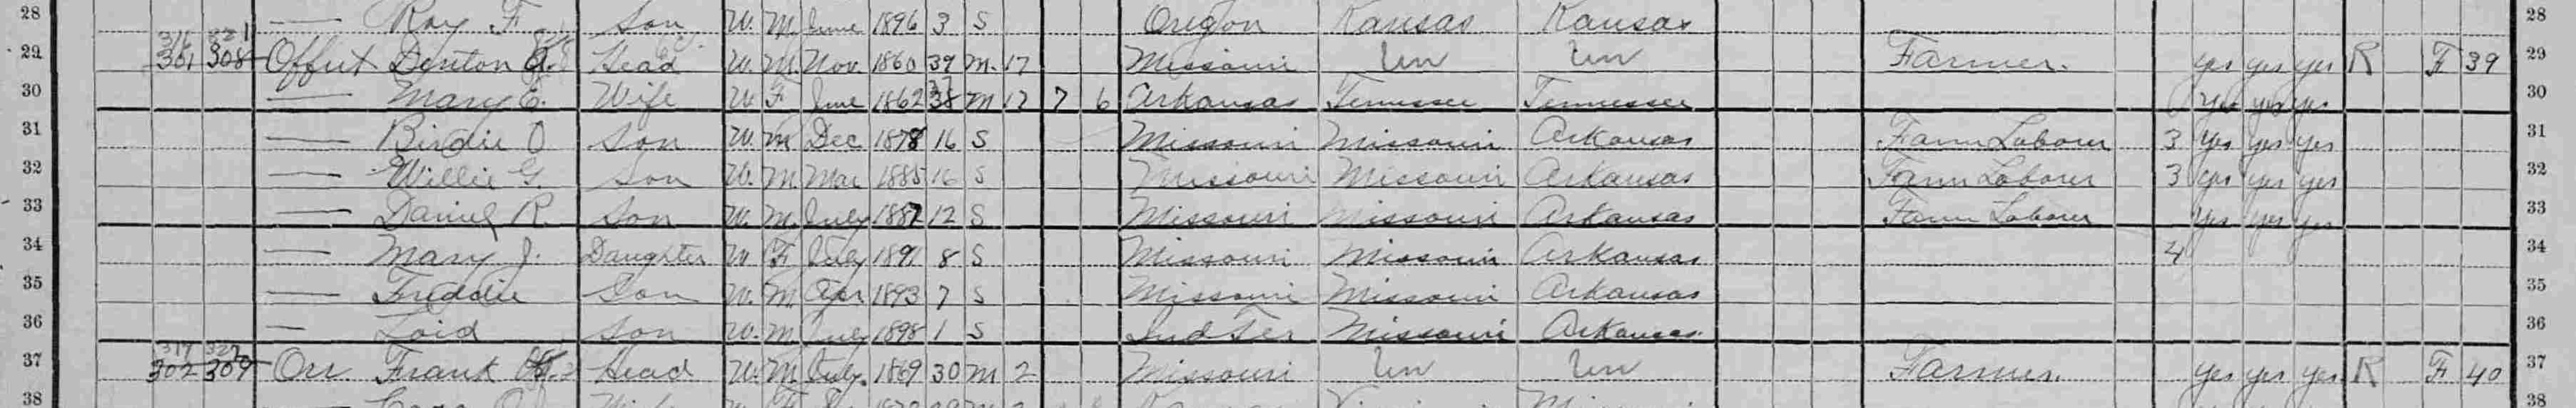 28 — Roy F Son W. M. June 1896 3 S Oregon Kansas Kansas 28
29 301 308 Offut Denton Head W. M. Nov. 1860 39 M. 17 Missouri Un Un Farmer. yes yes yes R F 39 29
30 — Mary E. Wife W F June 1862 M 17 7 6 Arkansas Tennessee Tennessee yes yes yes 30
31 — Birdie O Son W. M Dec 16 S Missouri Missouri Arkansas Farm Laborer 3 yes yes yes 31
32 — Willie G. Son W. M. Mar 1885 16 S Missouri Missouri Arkansas Farm Laborer 3 yes yes yes 32
33 — Daniel R. Son W. M. July 1887 12 S Missouri Missouri Arkansas Farm Laborer yes yes yes 33
34 — Mary J. Daughter W F July 1891 8 S Missouri Missouri Arkansas 4 34
35 — Freddie Son W. M. Apr 1893 7 S Missouri Missouri Arkansas 35
36 — Loid Son W. M. July 1898 1 S Ind Ter Missouri Arkansas 36
37 302 309 Orr. Frank Head W. M. July. 1869 30 M 2 Missouri Un Un Farmer. yes yes yes R F 40 37
38 38